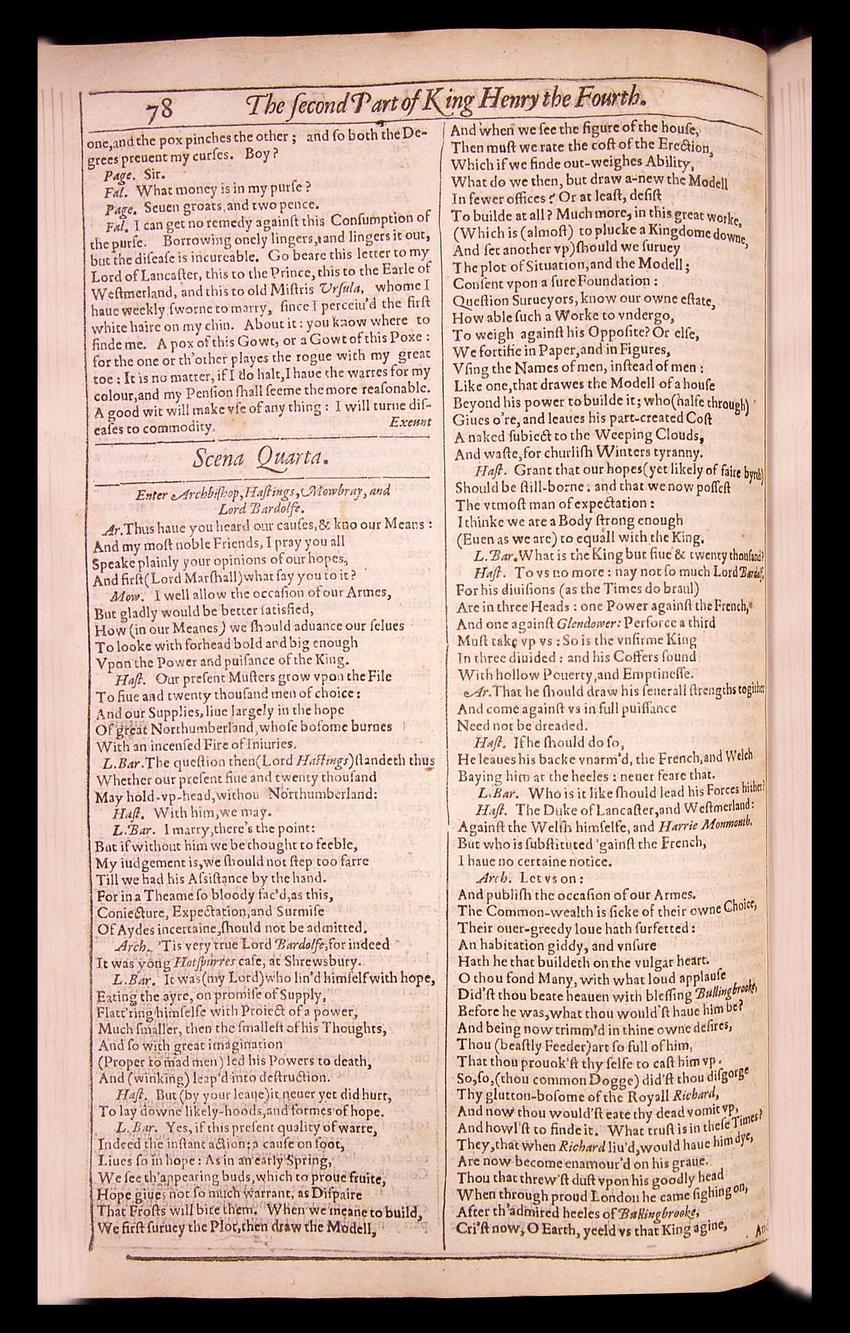 78 The ſecond Part of King Henry the Fourth.
one, and the pox pinches the other ; and ſo both the De-
grees preuent my curſes. Boy ?
Page. Sir.
Fal. What money is in my purſe ?
Page. Seuen groats, and two pence.
Fal. I can get no remedy againſt this Conſumption of
the purſe. Borrowing onely lingers, and lingers it out,
but the diſeaſe is incureable. Go beare this letter to my
Lord of Lancaſter, this to the Prince, this to the Earle of
Weſtmerland, and this to old Miſtris Vrſula, whome I
haue weekly ſworne to marry, ſince I perceiu'd the firſt
white haire on my chin. About it : you know where to
finde me. A pox of this Gowt, or a Gowt of this Poxe :
for the one or th'other playes the rogue with my great
toe : It is no matter, if I do halt, I haue the warres for my
colour, and my Penſion ſhall ſeeme the more reaſonable.
A good wit will make vſe of any thing : I will turne diſ-
eaſes to commodity. Exeunt
Scena Quarta.
Enter Archbiſhop, Haſtings, Mowbray, and
Lord Bardolfe.
Ar. Thus haue you heard our cauſes, & kno our Means :
And my moſt noble Friends, I pray you all
Speake plainly your opinions of our hopes,
And firſt (Lord Marſhall) what ſay you to it ?
Mow. I well allow the occaſion of our Armes,
But gladly would be better ſatisfied,
How (in our Meanes) we ſhould aduance our ſelues
To looke with forhead bold and big enough
Vpon the Power and puiſance of the King.
Haſt. Our preſent Muſters grow vpon the File
To fiue and twenty thouſand men of choice :
And our Supplies, liue largely in the hope
Of great Northumberland, whoſe boſome burnes
With an incenſed Fire of Iniuries.
L.Bar. The queſtion then (Lord Haſtings) ſtandeth thus
Whether our preſent fiue and twenty thouſand
May hold-vp-head, withou Northumberland:
Haſt. With him, we may.
L.Bar. I marry, there's the point:
But if without him we be thought to feeble,
My iudgement is, we ſhould not ſtep too farre
Till we had his Aſsiſtance by the hand.
For in a Theame ſo bloody fac'd, as this,
Coniecture, Expectation, and Surmiſe
Of Aydes incertaine, ſhould not be admitted.
Arch. 'Tis very true Lord Bardolfe, for indeed
It was yong Hotſpurres caſe, at Shrewsbury.
L.Bar. It was (my Lord) who lin'd himſelf with hope,
Eating the ayre, on promiſe of Supply,
Flatt'ring himſelfe with Proiect of a power,
Much ſmaller, then the ſmalleſt of his Thoughts,
And ſo with great imagination
(Proper to mad men) led his Powers to death,
And (winking) leap'd into deſtruction.
Haſt. But (by your leaue) it neuer yet did hurt,
To lay downe likely-hoods, and formes of hope.
L.Bar. Yes, if this preſent quality of warre,
Indeed the inſtant action: a cauſe on foot,
Liues ſo in hope : As in an early Spring,
We ſee th'appearing buds, which to proue fruite,
Hope giues not ſo much warrant, as Diſpaire
That Froſts will bite them. When we meane to build,
We firſt ſuruey the Plot, then draw the Modell,
And when we ſee the figure of the houſe,
Then muſt we rate the coſt of the Erection,
Which if we finde out-weighes Ability,
What do we then, but draw a-new the Modell
In fewer offices ? Or at leaſt, deſiſt
To builde at all ? Much more, in this great worke,
(Which is (almoſt) to plucke a Kingdome downe,
And ſet another vp) ſhould we ſuruey
The plot of Situation, and the Modell ;
Conſent vpon a ſure Foundation :
Queſtion Surueyors, know our owne eſtate,
How able ſuch a Worke to vndergo,
To weigh againſt his Oppoſite? Or elſe,
We fortifie in Paper, and in Figures,
Vſing the Names of men, inſtead of men :
Like one, that drawes the Modell of a houſe
Beyond his power to builde it ; who (halfe through)
Giues o're, and leaues his part-created Coſt
A naked ſubiect to the Weeping Clouds,
And waſte, for churliſh Winters tyranny.
Haſt. Grant that our hopes (yet likely of faire byrth)
Should be ſtill-borne : and that we now poſſeſt
The vtmoſt man of expectation :
I thinke we are a Body ſtrong enough
(Euen as we are) to equall with the King.
L.Bar. What is the King but fiue & twenty thouſand?
Haſt. To vs no more : nay not ſo much Lord Bardolf,
For his diuiſions (as the Times do braul)
Are in three Heads : one Power againſt the French,
And one againſt Glendower: Perforce a third
Muſt take vp vs : So is the vnfirme King
In three diuided : and his Coffers ſound
With hollow Pouerty, and Emptineſſe.
Ar. That he ſhould draw his ſeuerall ſtrengths togither
And come againſt vs in full puiſſance
Need not be dreaded.
Haſt. If he ſhould do ſo,
He leaues his backe vnarm'd, the French, and Welch
Baying him at the heeles : neuer feare that.
L.Bar. Who is it like ſhould lead his Forces hither?
Haſt. The Duke of Lancaſter, and Weſtmerland:
Againſt the Welſh himſelfe, and Harrie Monmouth.
But who is ſubſtituted 'gainſt the French,
I haue no certaine notice.
Arch. Let vs on :
And publiſh the occaſion of our Armes.
The Common-wealth is ſicke of their owne Choice,
Their ouer-greedy loue hath ſurfetted :
An habitation giddy, and vnſure
Hath he that buildeth on the vulgar heart.
O thou fond Many, with what loud applauſe
Did'ſt thou beate heauen with bleſſing Bullingbrooke,
Before he was, what thou would'ſt haue him be?
And being now trimm'd in thine owne deſires,
Thou (beaſtly Feeder) art ſo full of him,
That thou prouok'ſt thy ſelfe to caſt him vp.
So, ſo, (thou common Dogge) did'ſt thou diſgorge
Thy glutton-boſome of the Royall Richard,
And now thou would'ſt eate thy dead vomit vp,
And howl'ſt to finde it. What truſt is in theſe Times?
They, that when Richard liu'd, would haue him dye,
Are now become enamour'd on his graue.
Thou that threw'ſt duſt vpon his goodly head
When through proud London he came ſighing on,
After th'admired heeles of Bullingbrooke,
Cri'ſt now, O Earth, yeeld vs that King agine,